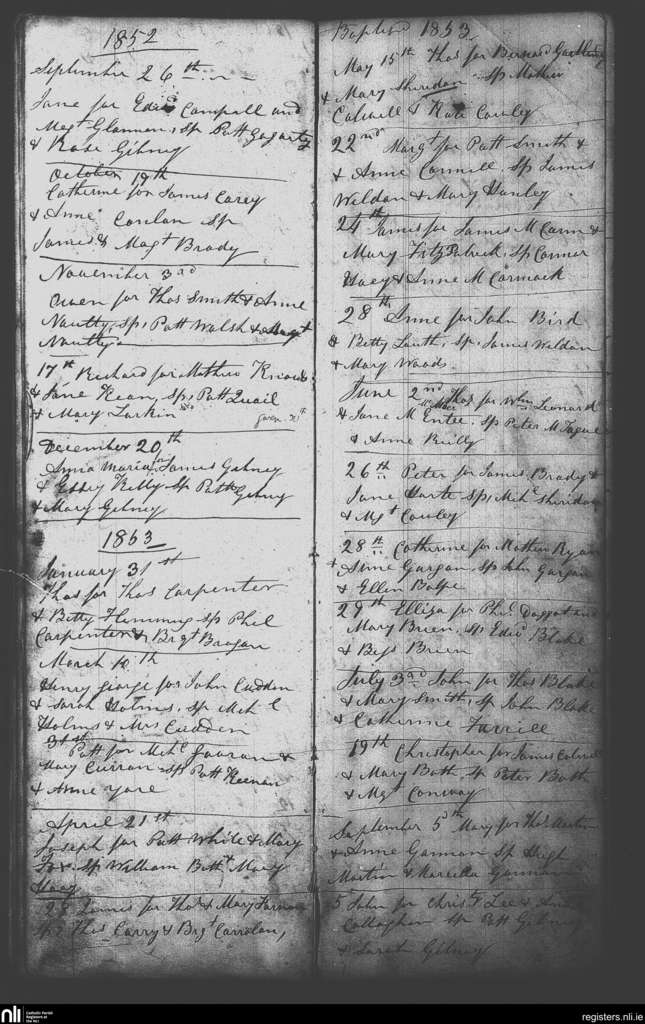 1852
September 26th
Jane for Edwd Campell and
Magt Glannan, Sp Patt Gogarty
& Rose Gibney
October 19th
Catherine for James Carey
& Anne Conlan Sp
James & Magt Brady
November 3rd
Owen for Thos Smith & Anne
Nautty, Sps Patt Walsh & Magt
Nautty
17th Richard for Mathew
& Jane Kean, Sps Patt Quail
& Mary Larkin
December 20th
Anna Maria for James Gibney
& Essey Kelly Sp Patt Gibney
& Mary Gibney
1853
January 31st
Thos for Thos Carpenter
& Betty Flemming Sp Phil
Carpenter & Brgt Brogan
March 10th
Henry George for John Cudden
& Sarah Holms, Sp Mihl
Holms & Mrs Cudden
31st
Patt for Mihl &
Mary Curran Sp Patt Keenan
& Anne Yore
April 21st
Joseph for Patt White & Mary
Fox. Sp William & Mary
Hoey
28 James for Thos & Mary
Sps Thos Carry & Brgt Carrolan,
Baptised 1853
May 15th Thos for Bernard
& Mary Sheridan Sp Mathew
Caldwell & Kate Cauley
22nd Margt for Patt Smith &
& Anne Connell. Sp James
Weldon & Mary Hanley
24th James for James McCann &
Mary FitzPatrick, Sp Connor
Hoey & Anne McCormack
28th Anne for John Bird
& Betty Smith, Sp. James Weldon
& Mary Woods
June 2nd Thos for Wm Leonard
& Jane McEntee. Sp Peter McTague
& Anne Reidy
26th Peter for James Brady &
Jane Harte Sps Mihl Sheridan
& Mgt Cauley
28th Catherine for Mathew Ryan
& Anne Gargan Sp John Gargan
& Ellen
29th Elliza for Phil Doggat and
Mary Brien, Sp Edwd Blake
& Bess Brien
July 3rd John for Thos Blake
& Mary Smith, Sp John Blake
& Catherine
19th Christopher for James
& Mary Bath Sp Peter Bath
& Mgt Conway
September 5th Mary for Thos Martin
& Anne Gannon Sp Hugh
Martin & Marcella Gannon
5 John for Christr Lee &
Callaghan Sp Patt Gibney
& Sarah Gibney
nli
Catholic Parish
Registers at
the NLI
registers.nli.ie